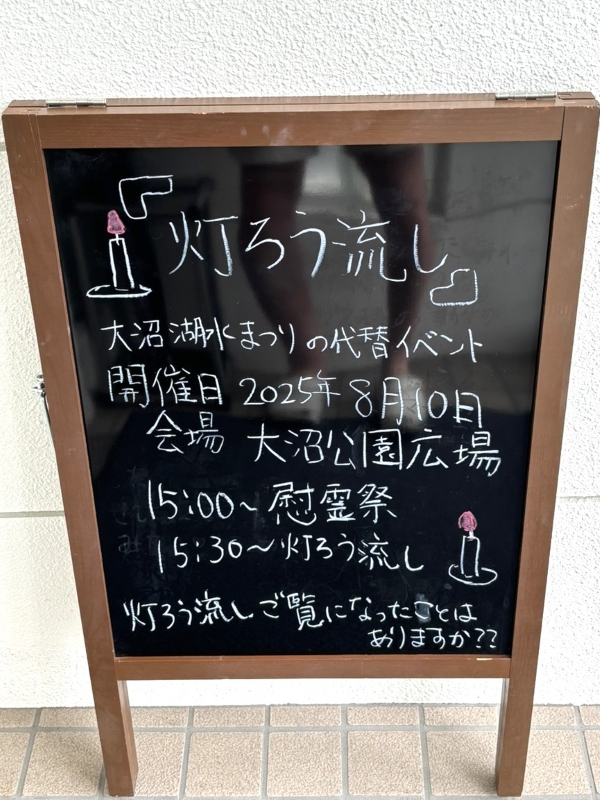 『灯ろう流し』
大沼湖水まつりの代替イベント
開催日 2025年 8月10日
会場 大沼公園広場
15:00~ 慰霊祭
15:30~灯ろう流し
灯ろう流しご覧になったことは
ありますか??